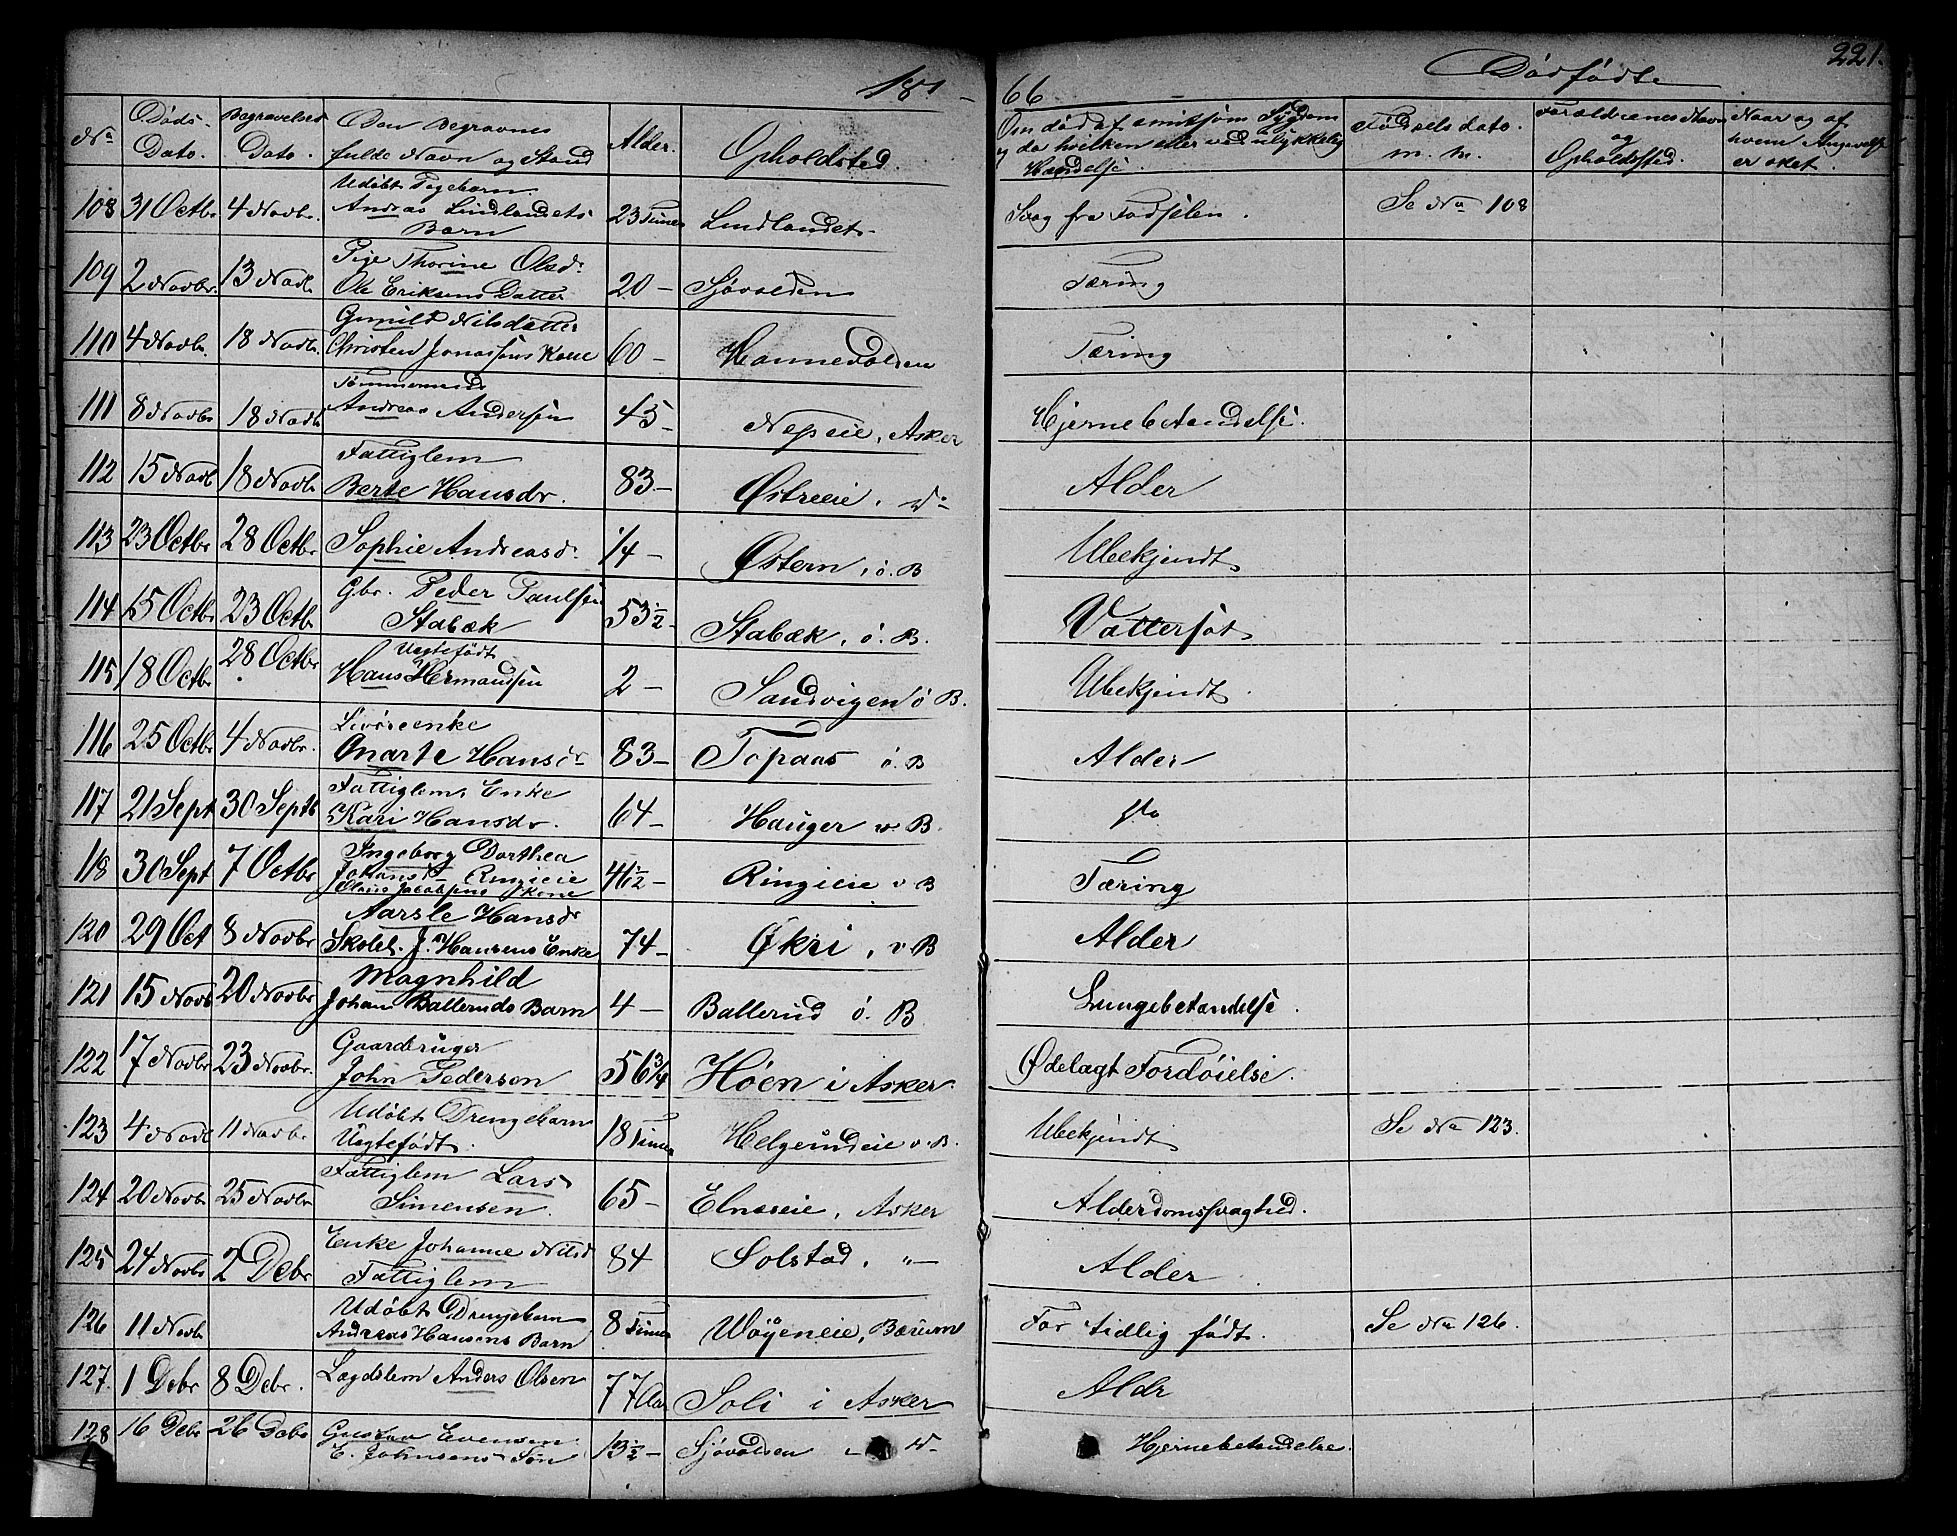 18 66 Dødfødte 221.
No Døds-Dato. Begravelses Dato. Den Begravnes fulde Navn og Stand Alder. Opholdsted. Om død af smitsom Sygdom og da hvilken eller ved ulykkelig Hændelse. Fødsels dato. m. m. Forældrenes Navn og Opholdssted. Naar og af hvem Angivelse er sket.
108 31 Octbr 4 Novbr. Udöbt Pigebarn. Andreas Lindlandets Barn 23 Timer Lindlandet Svag fra Fødselen. Se No 108
109 2 Novbr. 13 Novb Pige Thorine Olsd. Ole Eriksens Datter 20 – Sjøvolden Tæring
110 4 Novbr. 18 Novbr. Gunild Nilsdatter Christen Jonassens Kone 60 – Hannevolden Tæring
111 8 Novbr 18 Novb Tømmermand Andreas Andersen 45 – Nepseie, Asker Hjernebetændelse.
112 15 Novb 18 Novb Fattiglem Berte Hansdr. 83 – Østreeie, do Alder
113 23 Octbr 28 Octbr Sophie Andreasd. 14 – Østern, ö. B Ubekjendt
114 15 Octbr 23 Octb Gbr. Peder Paulsen Stabæk 53½ – Stabæk, ö. B. Vattersot
115 18 Octbr 28 Octbr Uægtefödt Hans Hermandsen 2 – Sandvigen ö B. Ubekjendt.
116 25 Octbr 4 Novbr. Livöreenke Marte Hansdr 83 – Topaas ö. B Alder
117 21 Sept 30 Septb Fattiglem, Enke Kari Hansdr. 64 – Hauger v B. do
118 30 Sept 7 Octbr Ingeborg Dorthea Johansd Ringieie Kone 41½ – Ringieie v B Tæring
120 29 Oct 8 Novbr Aarsle Hansdr Skolel. J. Hansens Enke 74 – Økri, v B Alder
121 15 Novb 20 Novbr Magnhild Johan Balleruds Barn 4 – Ballerud ö. B Lungebetændelse.
122 17 Novbr 23 Novbr. Gaardbruger John Pedersen 56¾ Höen i Asker. Ödelagt Fordöielse.
123 4 Novb 11 Novbr Udöbt Drengebarn Uægtefödt. 18 Timer Helgerudeie v. B. Ubekjendt Se No 123.
124 20 Novbr 25 Novbr Fattiglem Lars Simensen. 65 – Elnæseie, Asker Alderdomssvaghed.
125 24 Novbr 2 Debr Enke Johanne Nilsd Fattiglem 84 Solstad, " – Alder
126 11 Novbr Udöbt Drengebarn Andreas Hansens Barn 8 Timer Wöyeneie, Bærum For tidlig födt. Se No 126.
127. 1 Debr 8 Debr. Lægdslem Anders Olsen 77 Aar Soli i Asker Aldr
128 16 Debr 26 Debr Gustav Evensen. E. Johnsens Søn 13½ – Sjøvolden – do – Hjernebetændelse.